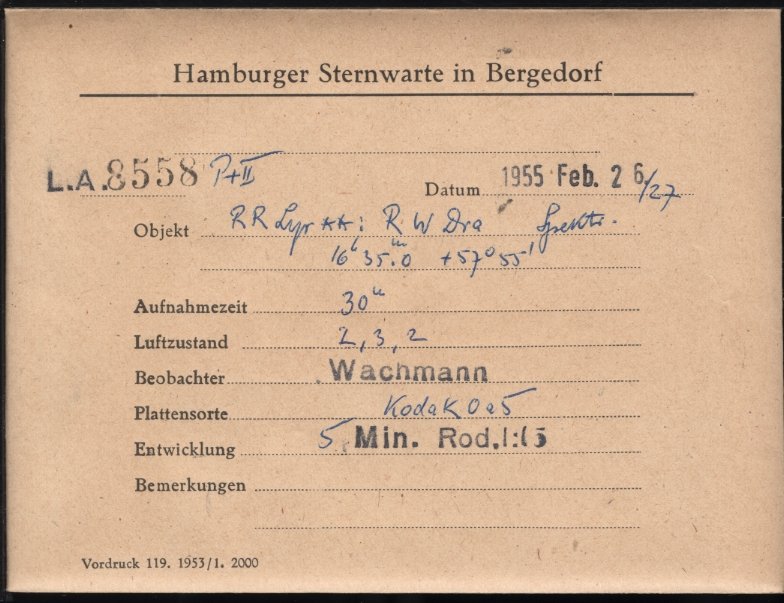 Hamburger Sternwarte in Bergedorf
L.A. 8558 P+II
Datum 1955 Feb. 26/27
Objekt RR Lyr **: RW Dra Spektr.
16ʰ 35.ᵐ0 +57° 55'
Aufnahmezeit 30ᵐ
Luftzustand 2, 3, 2
Beobachter Wachmann
Plattensorte Kodak 0a5
Entwicklung 5 Min. Rod. 1:15
Bemerkungen
Vordruck 119. 1953/1. 2000